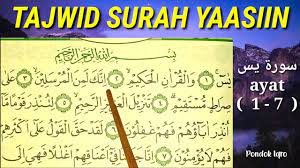 TAJWID SURAH YAASIIN
بِسْمِ اللهِ الرَّحْمٰنِ الرَّحِيْمِ
يٰسٓ ١ وَالْقُرْاٰنِ الْحَكِيْمِ ٢ اِنَّكَ لَمِنَ الْمُرْسَلِيْنَ ٣ عَلٰى
صِرَاطٍ مُّسْتَقِيْمٍ ٤ تَنْزِيْلَ الْعَزِيْزِ الرَّحِيْمِ ٥ لِتُنْذِرَ قَوْمًا مَّآ
اُنْذِرَ اٰبَآؤُهُمْ فَهُمْ غٰفِلُوْنَ ٦ لَقَدْ حَقَّ الْقَوْلُ عَلٰٓى اَكْثَرِهِمْ
فَهُمْ لَا يُؤْمِنُوْنَ ٧ اِنَّا جَعَلْنَا فِيْٓ اَعْنَاقِهِمْ اَغْلٰلًا فَهِيَ اِلَى
سورة يس
ayat
( 1 - 7 )
Pondok Iqro